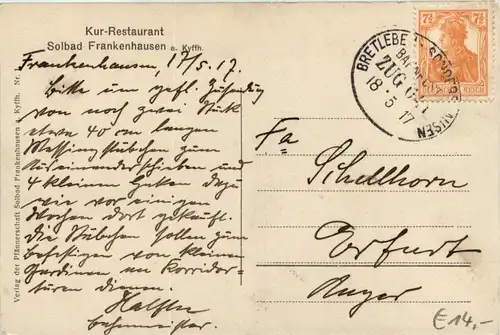 Kur-Restaurant
Solbad Frankenhausen a. Kyffh.
Frankenhausen, 17/5.17.
Bitte um gefl. Zusendung
von noch zwei Stück
etwa 40 cm langen
Messing stäbchen zum
und
4 kleinen Haken dazu
wie vor einigen
Wochen dort gekauft.
Die Stäbchen sollen zum
befestigen von kleinen
Gardinen an Korridor-
türen dienen.
Verlag der Pfännerschaft Solbad Frankenhausen a. Kyffh. Nr.
BRETLEBEN SONDERSHAUSEN
BAHNPOST
ZUG
18.5.17
7½
Fa
Schellhorn
Erfurt
Anger
€14,-